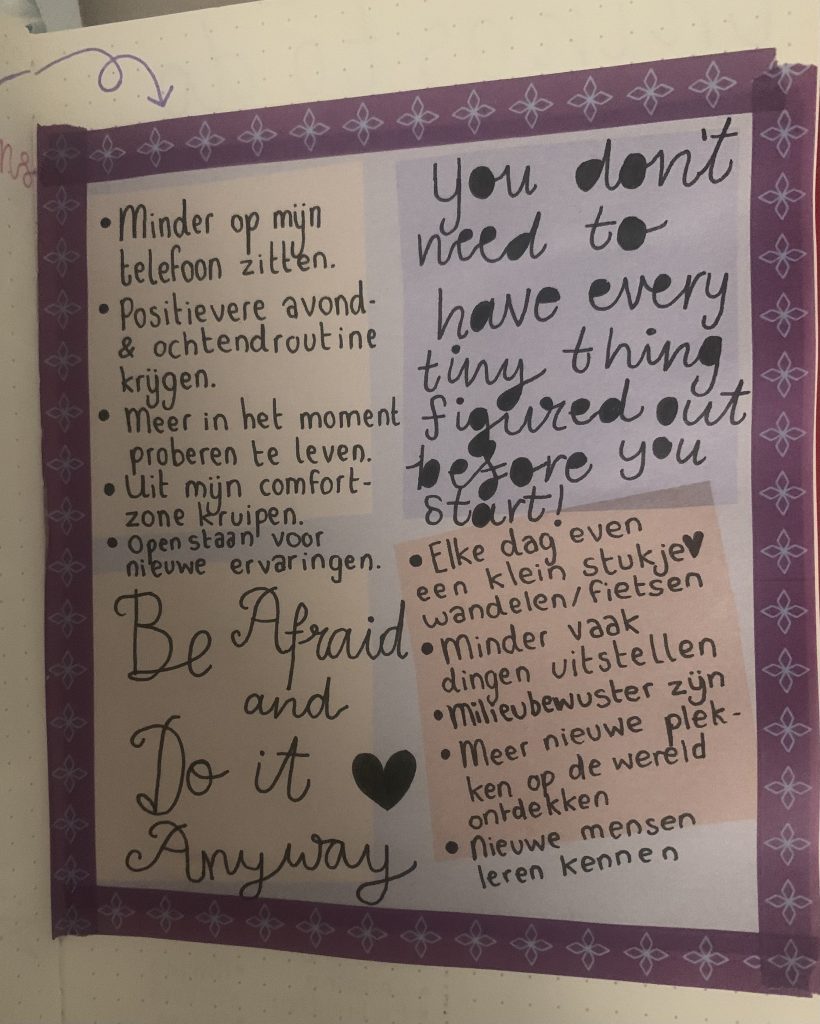 • Minder op mijn
telefoon zitten.
• Positievere avond-
& ochtendroutine
krijgen.
• Meer in het moment
proberen te leven.
• Uit mijn comfort-
zone kruipen.
• Open staan voor
nieuwe ervaringen.
you don't
need to
have every
tiny thing
figured out
before you
start!
Be Afraid
and
Do it
Anyway
• Elke dag even
een klein stukje
wandelen/fietsen
• Minder vaak
dingen uitstellen
• Milieubewuster zijn
• Meer nieuwe plek-
ken op de wereld
ontdekken
• nieuwe mensen
leren kennen